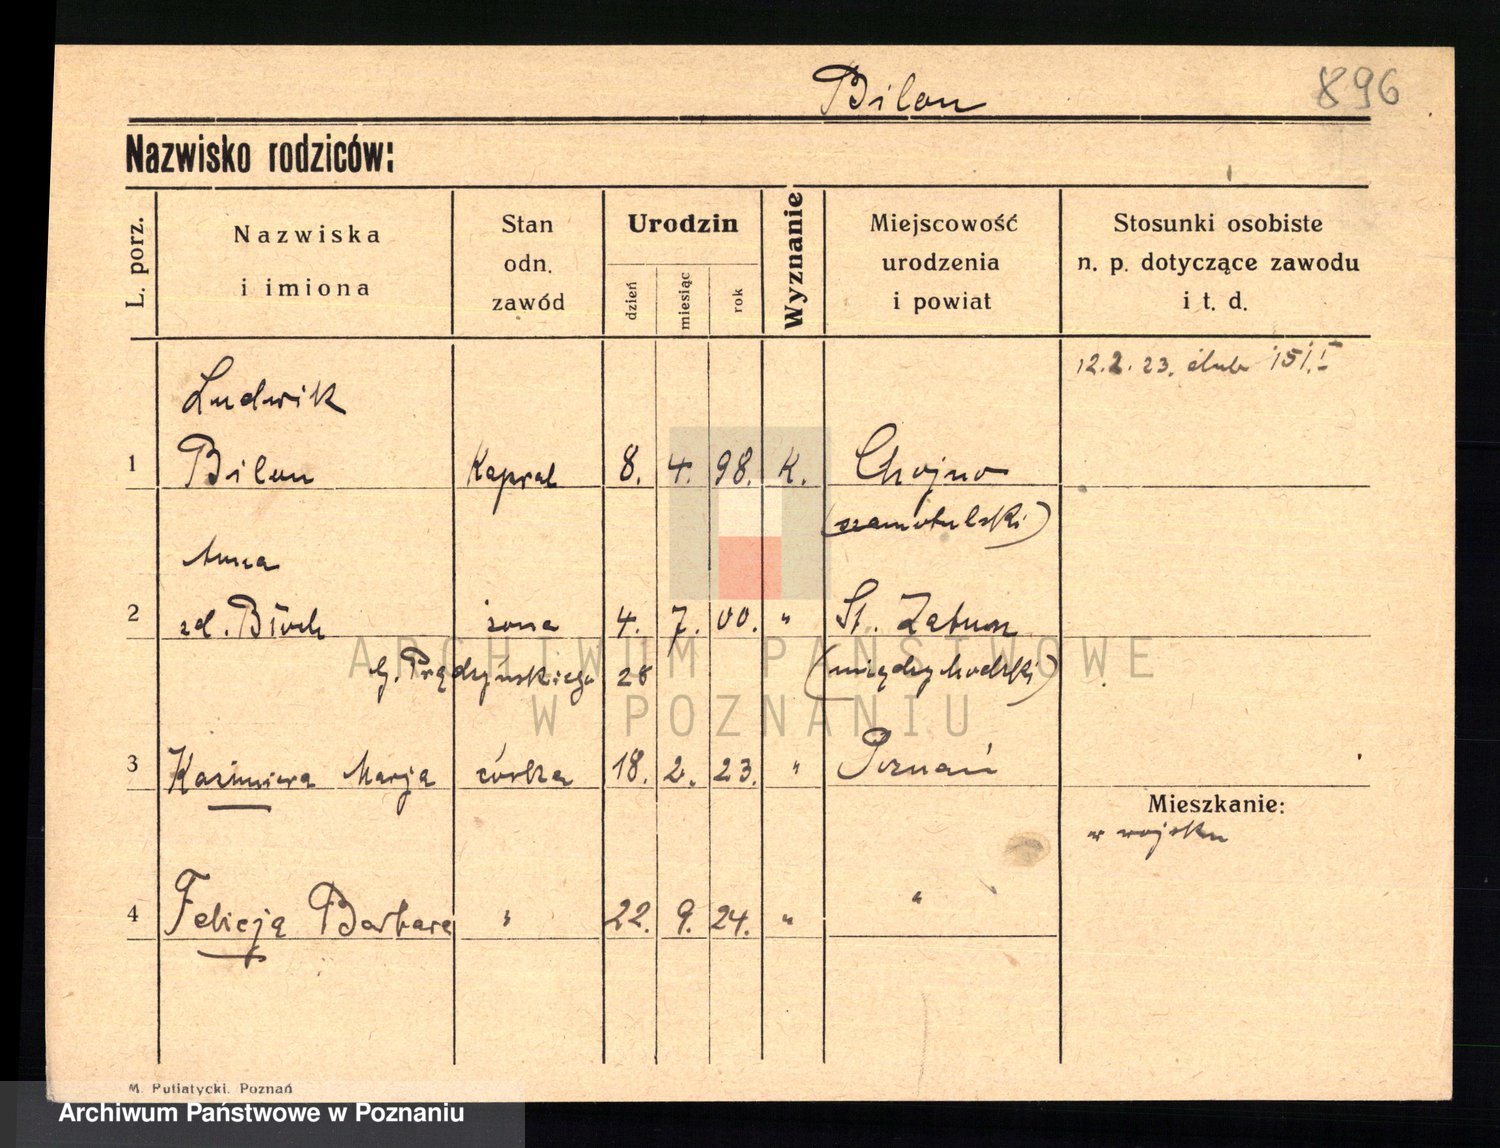 Bilon
896
Nazwisko rodziców:
L. porz.
Nazwiska
i imiona
Stan
odn.
zawód
Urodzin
dzień
miesiąc
rok
Wyznanie
Miejscowość
urodzenia
i powiat
Stosunki osobiste
n. p. dotyczące zawodu
i t. d.
12.2.23. ślub 151.I
Ludwik
1 Bilon Kapral 8. 4. 98. K. Chojno
(szamotulski)
Anna
2 zd. Błoch żona 4. 7. 00. " St. Zatum
G. Prądzyńskiego 28 (międzychodzki)
3 Kazimiera Marja córka 18. 2. 23. " Poznań
Mieszkanie:
w wojsku
4 Felicja Barbara " 22. 9. 24. " "
ARCHIWUM PAŃSTWOWE
W POZNANIU
M. Putiatycki, Poznań
Archiwum Państwowe w Poznaniu